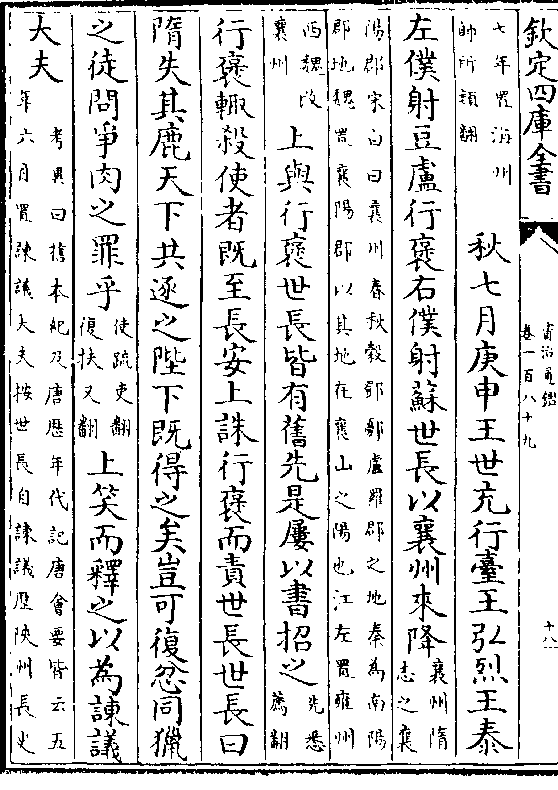 欽定四庫全書
資治通鑑
卷一百八十九
十八
七年置海州
帥所類翻
秋七月庚申王世充行臺王弘烈王泰
左僕射豆盧行褒右僕射蘇世長以襄州來降
襄州隋
志之襄
陽郡宋白曰襄州春秋榖鄧鄾盧羅郡之地秦為南陽
郡地魏置襄陽郡以其地在襄山之陽也江左置雍州
西魏改
襄州
上與行褒世長皆有舊先是屢以書招之
先悉
薦翻
行褒輙殺使者既至長安上誅行褒而責世長世長曰
隋失其鹿天下共逐之陛下既得之矣豈可復忿同獵
之徒問爭肉之罪乎
使疏吏翻
復扶又翻
上笑而釋之以為諫議
大夫
考異曰舊本紀及唐歷年代記唐會要皆云五
年六月置諫議大夫按世長自諫議歷陜州長史